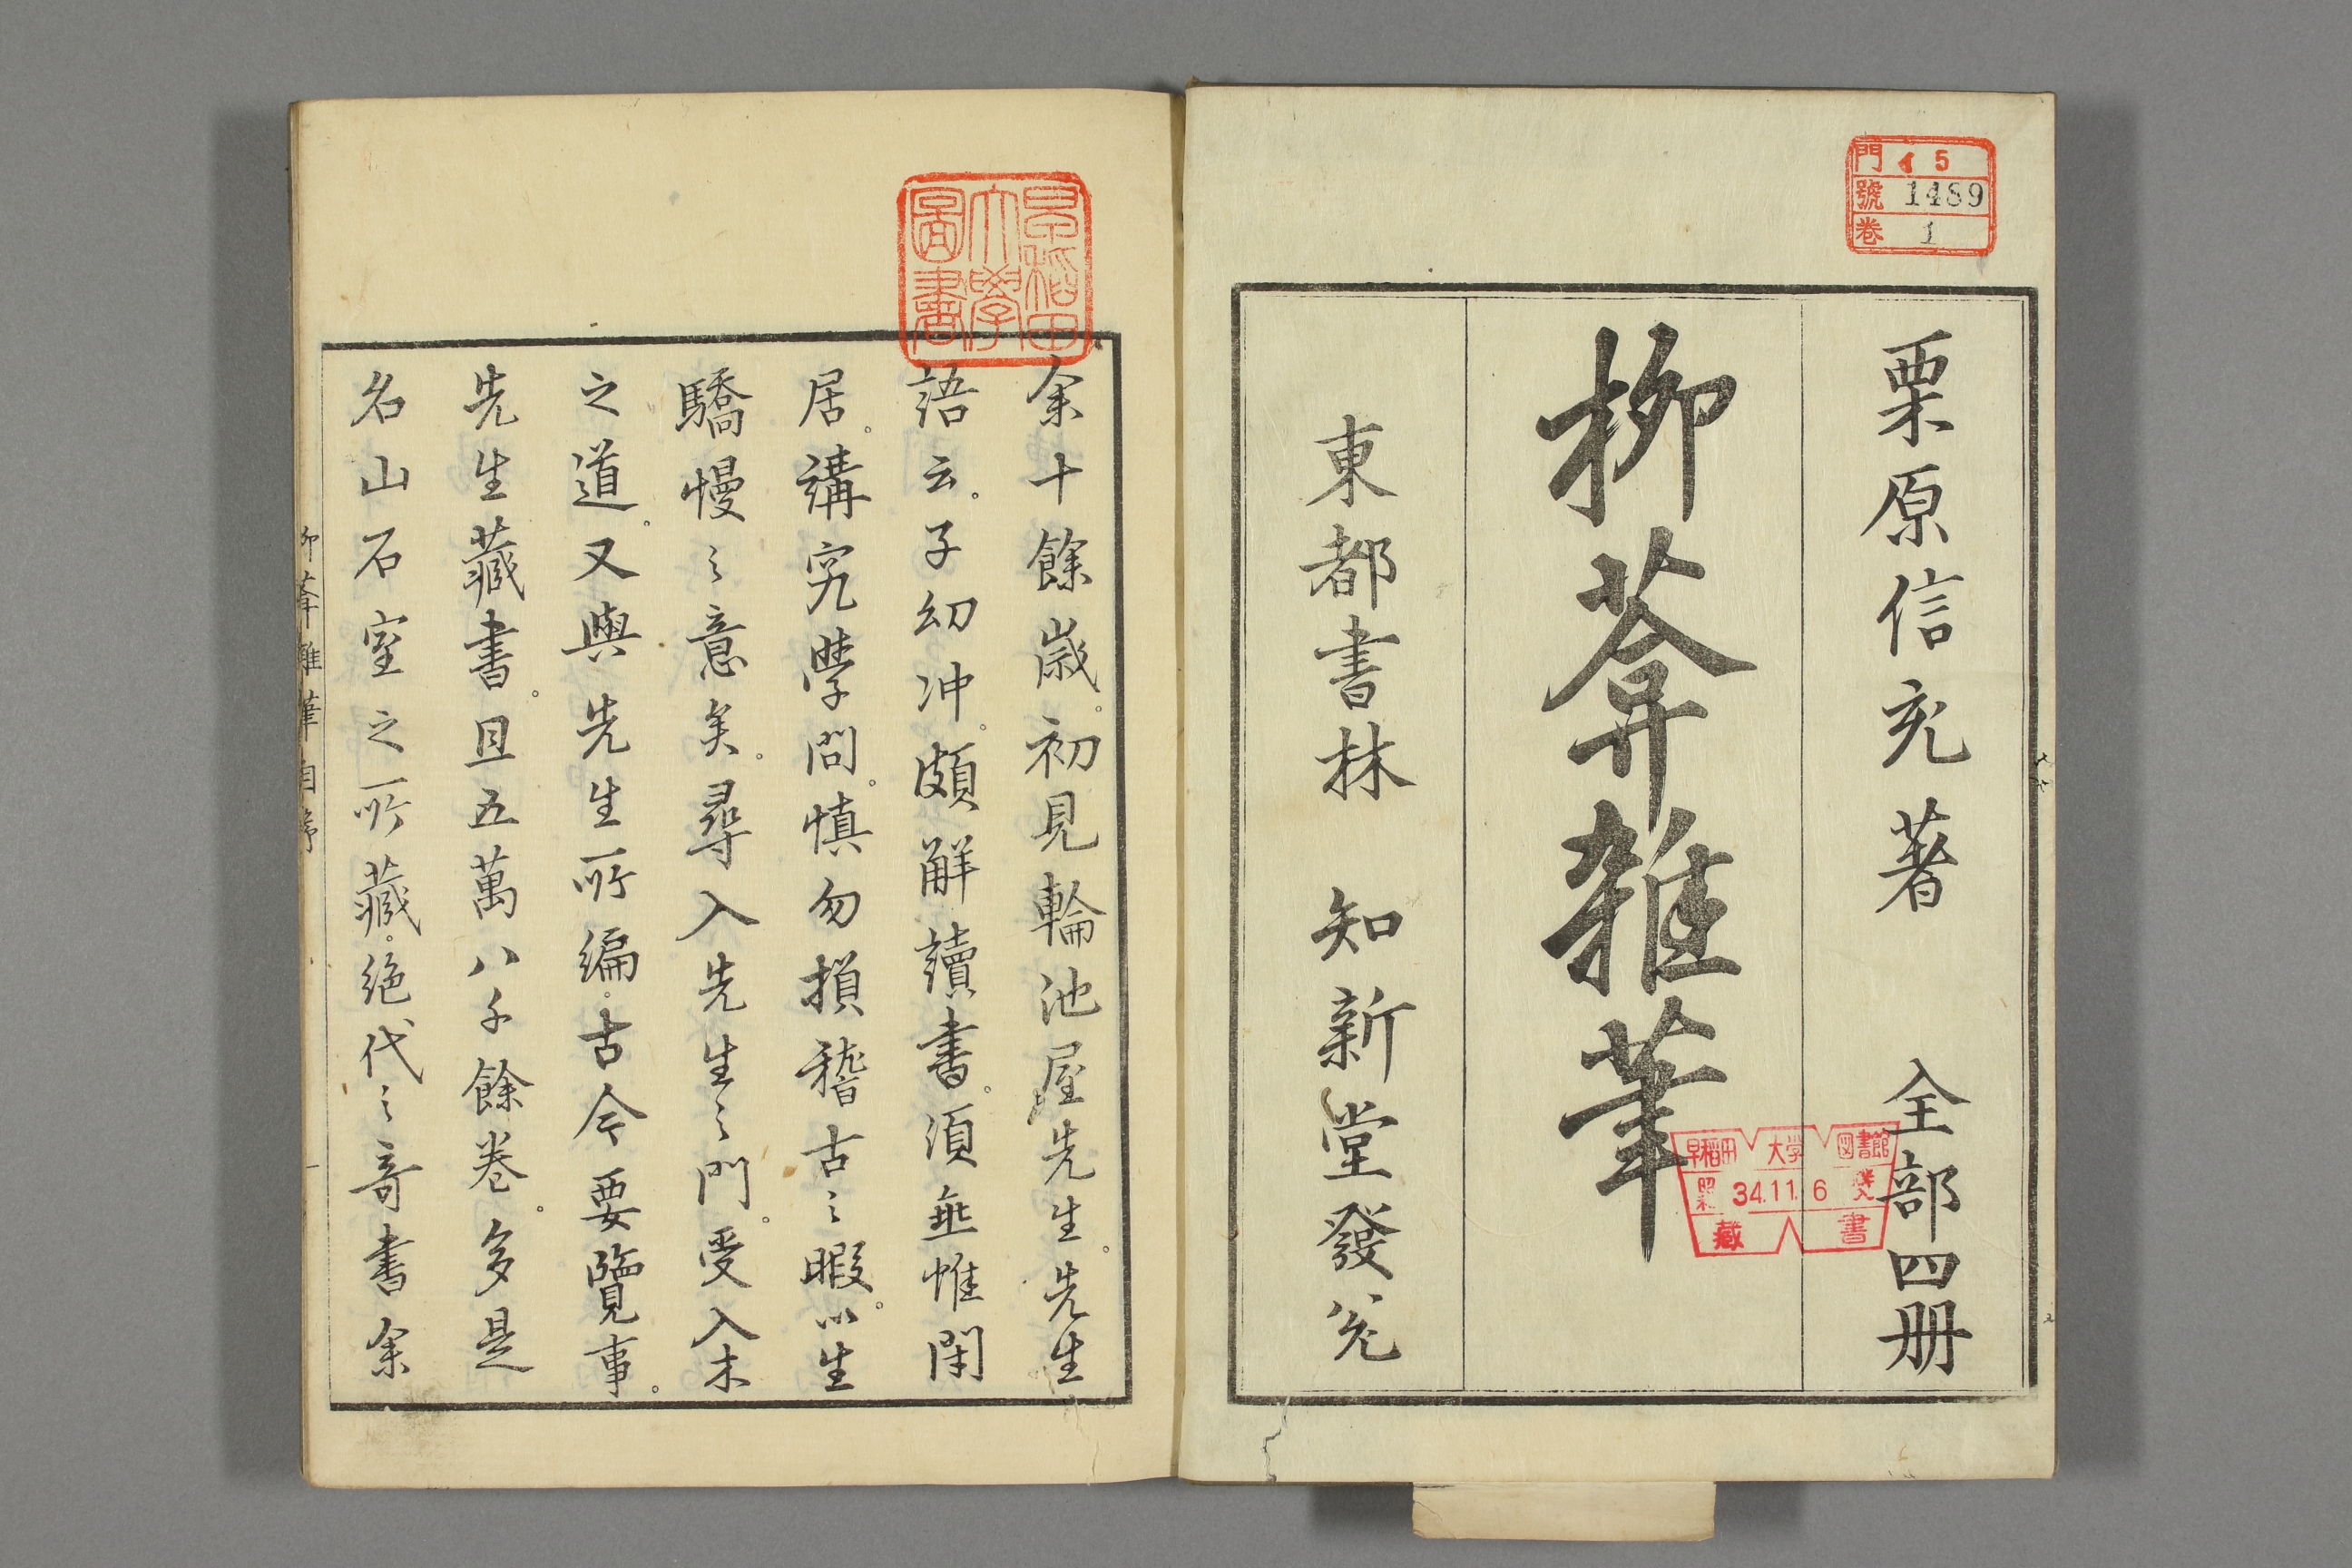 門 イ 5
號 1489
卷 1
栗原信充著 全部四册
柳葊雜筆
東都書林 知新堂發兌
早稲田大学図書館
昭和 34.11.6 購入
藏書
早稲田大學圖書
余十餘歲。初見輪池屋先生。先生
語云。子幼冲。頗解讀書。須垂帷閑
居。講究學問。慎勿損稽古之暇。以生
驕慢之意矣。尋入先生之門。受入木
之道。又與先生所編。古今要覽事。
先生藏書。且五萬八千餘卷。多是
名山石室之所藏。絶代之奇書余
柳葊雜筆自序 一